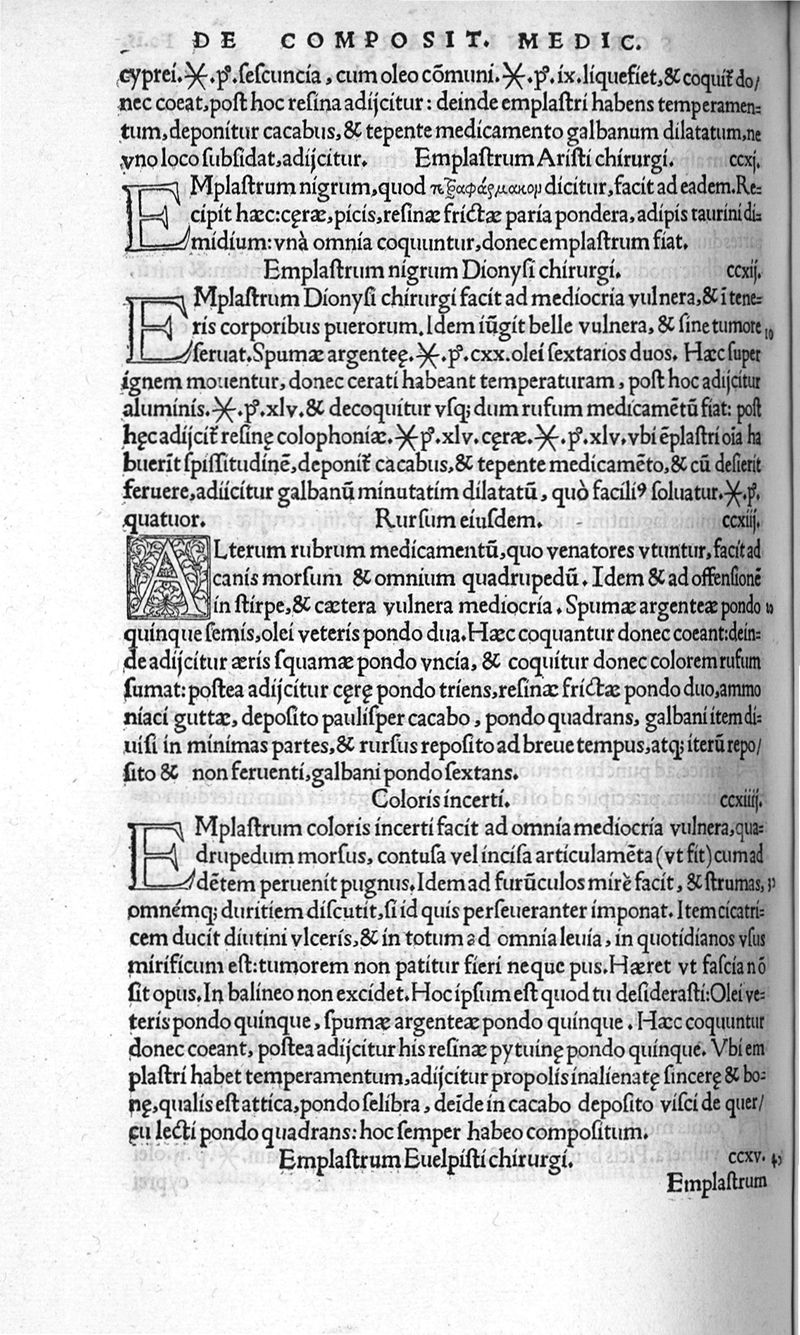 DE COMPOSIT. MEDIC.
cyprei.Ӿ.p̃.sescuncia, cum oleo cõmuni.Ӿ.p̃.ix.liquefiet,& coquit᷑ do/
nec coeat,post hoc resina adijcitur: deinde emplastri habens temperamen=
tum,deponitur cacabus,& tepente medicamento galbanum dilatatum,ne
vno loco subsidat,adijcitur. Emplastrum Aristi chirurgi. ccxj.
EMplastrum nigrum,quod τετραφάρμακομ dicitur,facit ad eadem.Re=
cipit hæc:cęræ,picis,resinæ frictæ paria pondera,adipis taurini di=
midium:vnà omnia coquuntur,donec emplastrum fiat.
Emplastrum nigrum Dionysi chirurgi. ccxij.
EMplastrum Dionysi chirurgi facit ad mediocria vulnera,& ĩ tene=
ris corporibus puerorum.Idem iũgit belle vulnera, & sine tumore 10
seruat.Spumæ argenteę.Ӿ.p̃.cxx.olei sextarios duos. Hæc super
ignem mouentur, donec cerati habeant temperaturam, post hoc adijcitur
aluminis.Ӿ.p̃.xlv.& decoquitur vsq; dum rufum medicamẽtũ fiat: post
hęc adijcit᷑ resinę colophoniæ.Ӿ.p̃.xlv.cęræ.Ӿ.p̃.xlv.vbi ẽplastri oĩa ha
buerĩt spissitudinẽ,deponit᷑ cacabus,& tepente medicamẽto,& cũ desierit
feruere,adiicitur galbanũ minutatim dilatatũ, quò faciliꝰ soluatur.Ӿ.p̃.
quatuor. Rursum eiusdem. ccxiij.
ALterum rubrum medicamentũ,quo venatores vtuntur,facit ad
canis morsum & omnium quadrupedũ. Idem & ad offensionẽ
in stirpe,& cætera vulnera mediocria. Spumæ argenteæ pondo 20
quinque semis,olei veteris pondo dua.Hæc coquantur donec coeant:dein=
de adijcitur æris squamæ pondo vncia, & coquitur donec colorem rufum
sumat: postea adijcitur cęrę pondo triens,resinæ frictæ pondo duo,ammo
niaci guttæ, deposito paulisper cacabo, pondo quadrans, galbani item di=
uisi in minimas partes,& rursus reposito ad breue tempus,atq; iterũ repo/
sito & non feruenti,galbani pondo sextans.
Coloris incerti. ccxiiij.
EMplastrum coloris incerti facit ad omnia mediocria vulnera,qua=
drupedum morsus, contusa vel incisa articulamẽta (vt fit) cum ad
dẽtem peruenit pugnus.Idem ad furũculos mirè facit, & strumas, 30
omnémq; duritiem discutit,si id quis perseueranter imponat.Item cicatri=
cem ducit diutini vlceris,& in totum ad omnia leuia, in quotidianos vsus
mirificum est:tumorem non patitur fieri neque pus.Hæret vt fascia nõ
sit opus.In balineo non excidet.Hoc ipsum est quod tu desiderasti:Olei ve=
teris pondo quinque, spumæ argenteæ pondo quinque. Hæc coquuntur
donec coeant, postea adijcitur his resinæ pytuinę pondo quinque. Vbi em
plastri habet temperamentum,adijcitur propolis inalienatę sincerę & bo=
nę,qualis est attica,pondo selibra, deĩde in cacabo deposito visci de quer/
cu lecti pondo quadrans: hoc semper habeo compositum.
Emplastrum Euelpisti chirurgi. ccxv. 40
Emplastrum